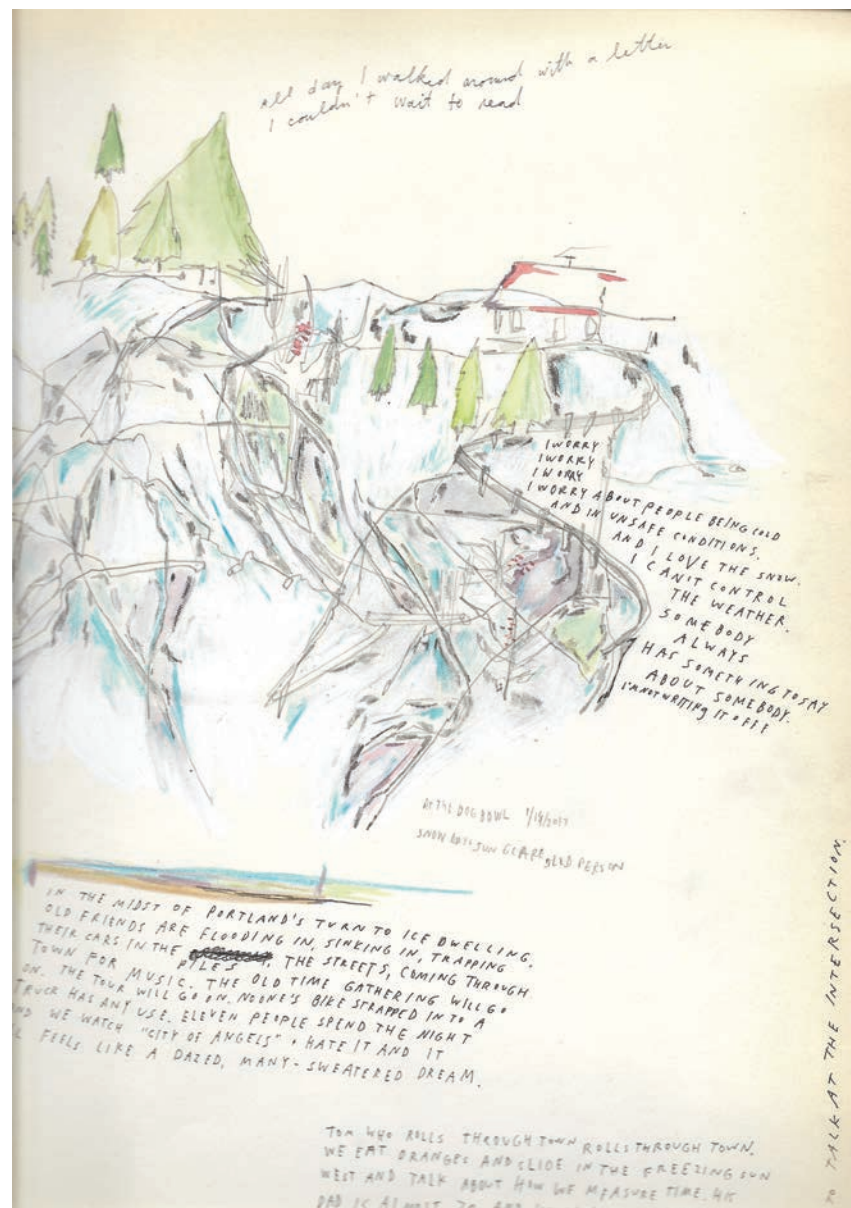 all day I walked around with a letter
I couldn't wait to read
I WORRY
I WORRY
I WORRY
I WORRY ABOUT PEOPLE BEING COLD
AND IN UNSAFE CONDITIONS.
AND I LOVE THE SNOW.
I CAN'T CONTROL
THE WEATHER.
SOMEBODY
ALWAYS
HAS SOMETHING TO SAY
ABOUT SOMEBODY.
I'M NOT WRITING IT OFF!
AT THE DOG BOWL 1/14/2017
SNOW DAYS SUN GLARE GLAD PERSON
IN THE MIDST OF PORTLAND'S TURN TO ICE DWELLING.
OLD FRIENDS ARE FLOODING IN, SINKING IN, TRAPPING
THEIR CARS IN THE PILES, THE STREETS, COMING THROUGH
TOWN FOR MUSIC. THE OLD TIME GATHERING WILL GO
ON. THE TOUR WILL GO ON. NOONE'S BIKE STRAPPED INTO A
TRUCK HAS ANY USE. ELEVEN PEOPLE SPEND THE NIGHT
AND WE WATCH "CITY OF ANGELS" + HATE IT AND IT
FEELS LIKE A DAZED, MANY-SWEATERED DREAM.
TOM WHO ROLLS THROUGH TOWN ROLLS THROUGH TOWN.
WE EAT ORANGES AND SLIDE IN THE FREEZING SUN
WEST AND TALK ABOUT HOW WE MEASURE TIME. HIS
DAD IS ALMOST 70 AND
TO TALK AT THE INTERSECTION.